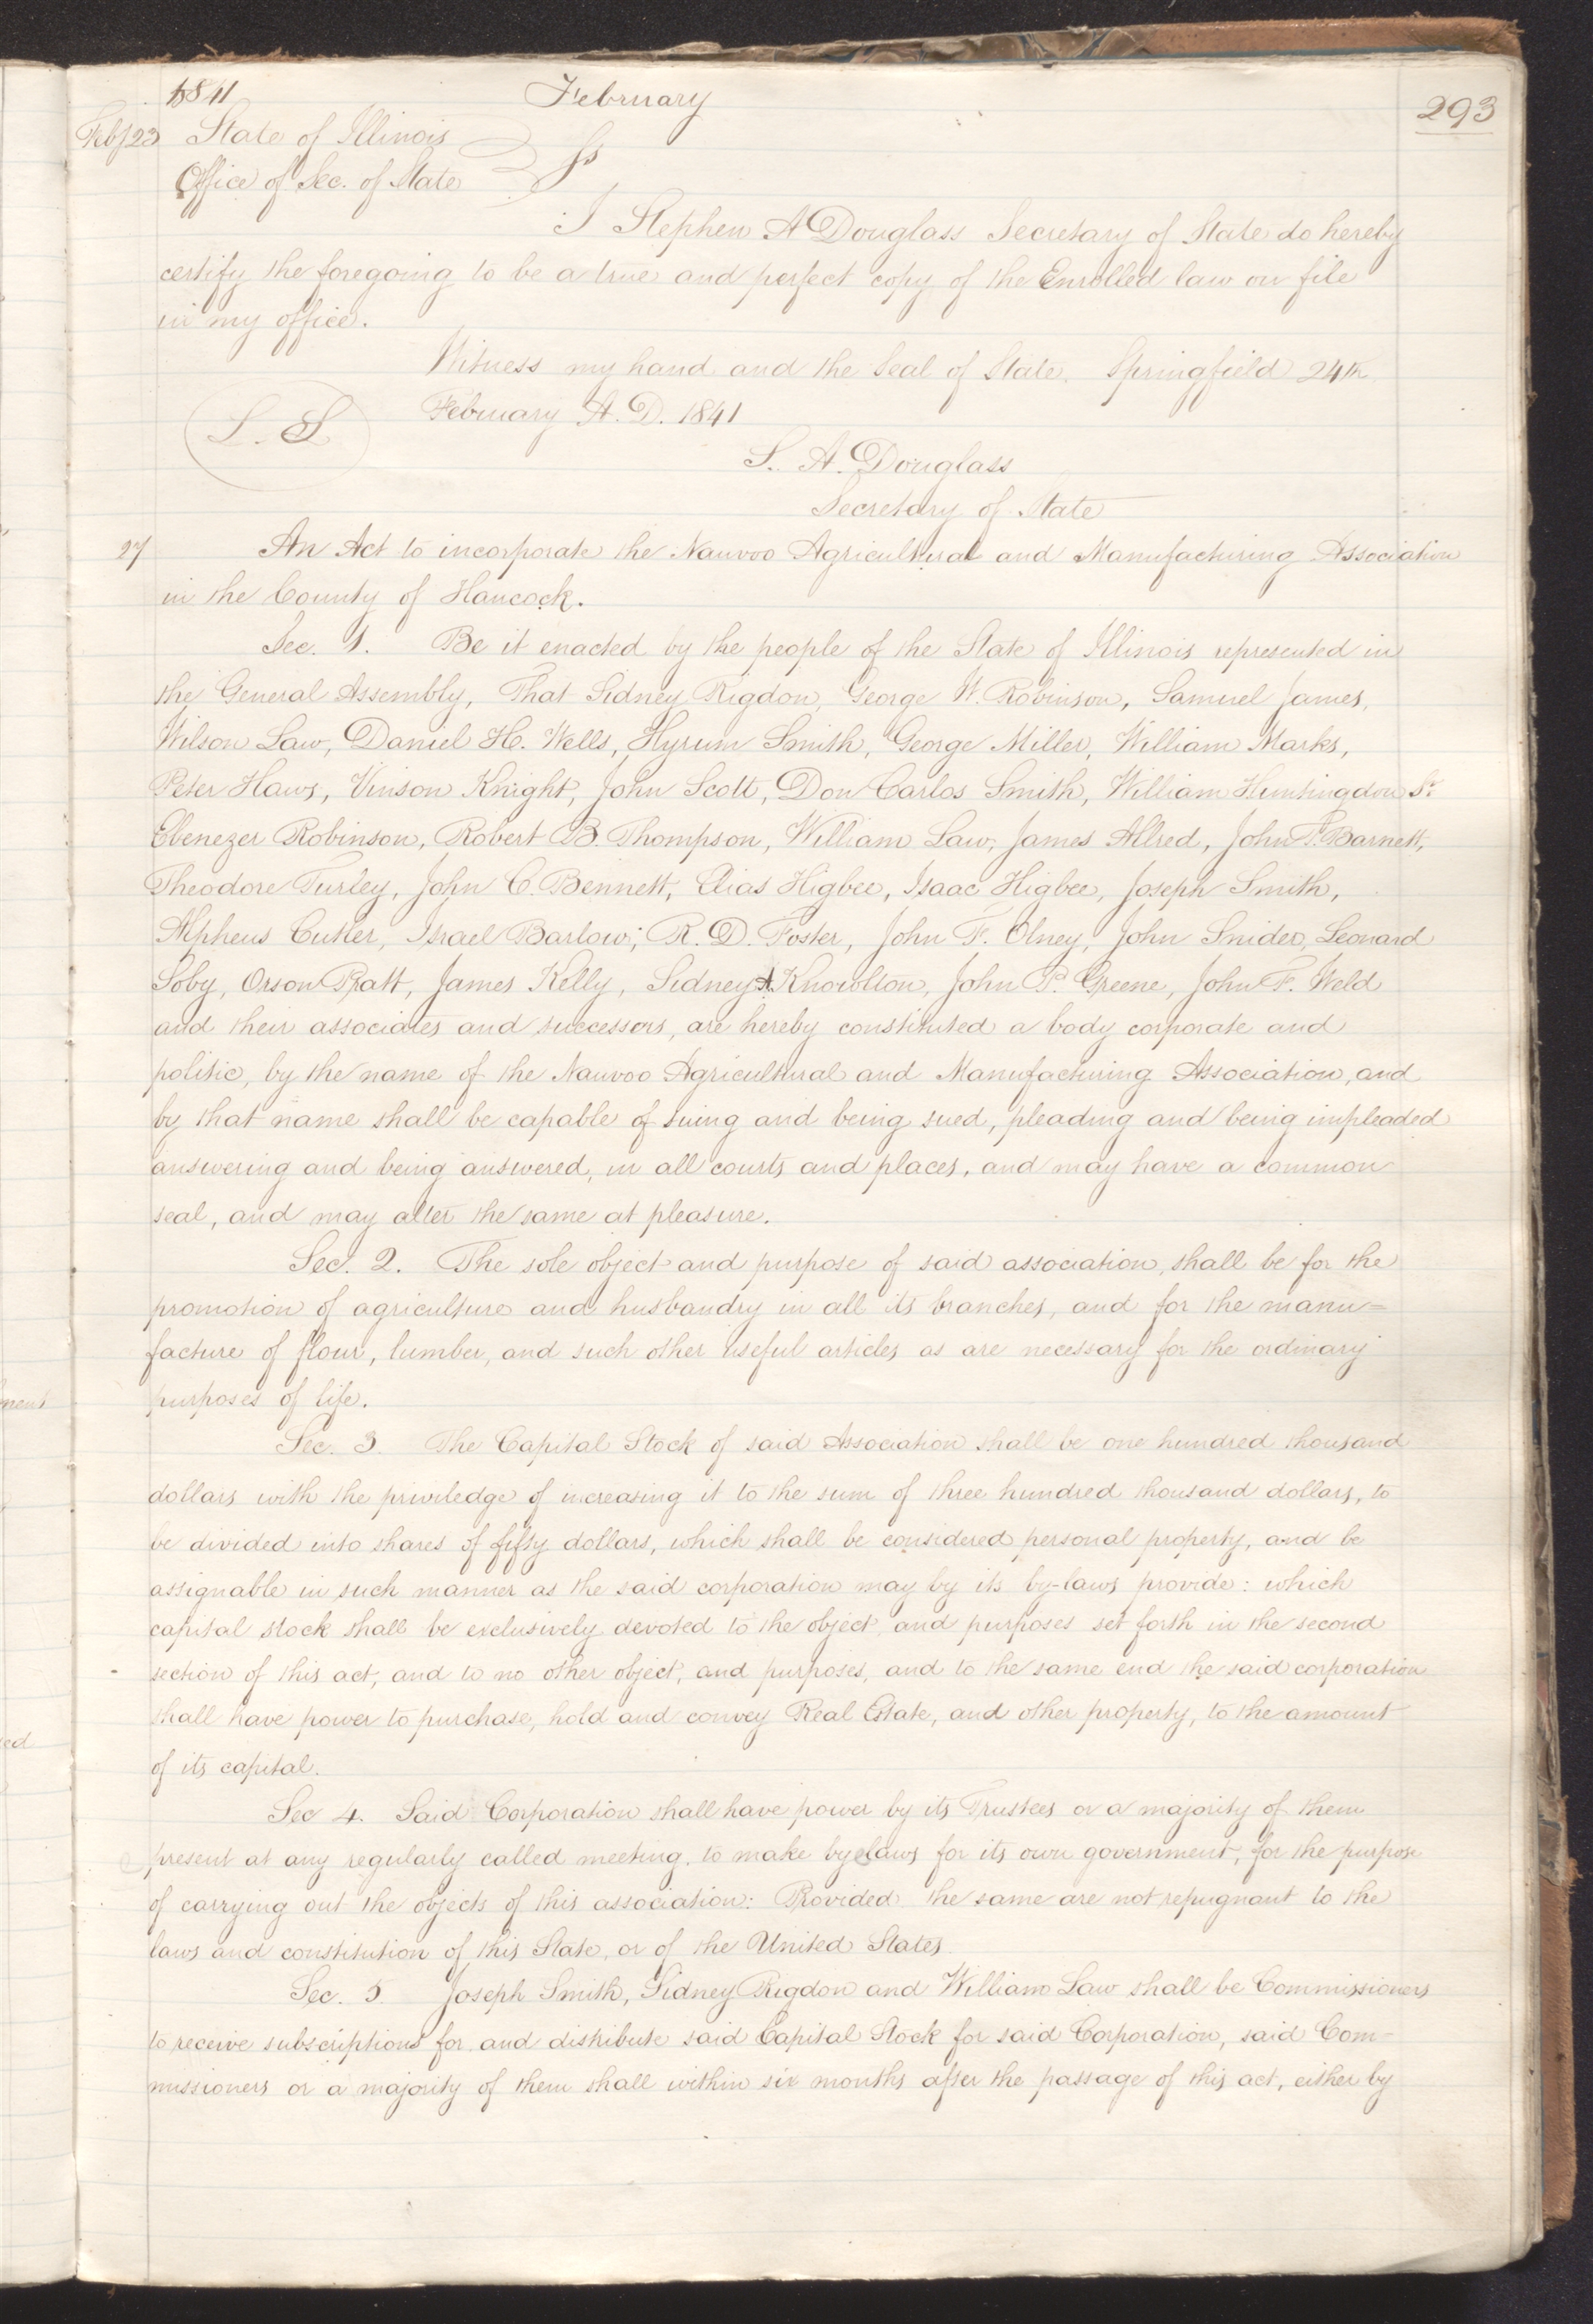 1841 February 293
Feb 23 State of Illinois
Office of Sec. of State } Ss
I Stephen A Douglass Secretary of State do hereby
certify the foregoing to be a true and perfect copy of the Enrolled law on file
in my office.
Witness my hand and the Seal of State. Springfield 24th
February A. D. 1841
L. S
S. A. Douglass
Secretary of State
27 An Act to incorporate the Nauvoo Agricultural and Manufacturing Association
in the County of Hancock.
Sec. 1. Be it enacted by the people of the State of Illinois represented in
the General Assembly, That Sidney Rigdon, George W. Robinson, Samuel James,
Wilson Law, Daniel H. Wells, Hyrum Smith, George Miller, William Marks,
Peter Haws, Vinson Knight, John Scott, Don Carlos Smith, William Huntingdon Sr.
Ebenezer Robinson, Robert B. Thompson, William Law, James Allred, John T. Barnett,
Theodore Turley, John C. Bennett, Elias Higbee, Isaac Higbee, Joseph Smith,
Alpheus Cutler, Israel Barlow, R. D. Foster, John F. Olney, John Snider, Leonard
Soby, Orson Pratt, James Kelly, Sidney A Knowlton, John P. Greene, John F. Weld
and their associates and successors, are hereby constituted a body corporate and
politic, by the name of the Nauvoo Agricultural and Manufacturing Association, and
by that name shall be capable of suing and being sued, pleading and being impleaded
answering and being answered, in all courts and places, and may have a common
seal, and may alter the same at pleasure.
Sec. 2. The sole object and purpose of said association, shall be for the
promotion of agriculture and husbandry in all its branches, and for the manu=
facture of flour, lumber, and such other useful articles as are necessary for the ordinary
purposes of life.
Sec. 3. The Capital Stock of said Association shall be one hundred thousand
dollars with the priviledge of increasing it to the sum of three hundred thousand dollars, to
be divided into shares of fifty dollars, which shall be considered personal property, and be
assignable in such manner as the said corporation may by its by-laws provide: which
capital stock shall be exclusively devoted to the object and purposes set forth in the second
section of this act, and to no other object, and purposes, and to the same end the said corporation
shall have power to purchase, hold and convey Real Estate, and other property, to the amount
of its capital.
Sec 4. Said Corporation shall have power by its Trustees or a majority of them
present at any regularly called meeting, to make byelaws for its own government, for the purpose
of carrying out the objects of this association: Provided the same are not repugnant to the
laws and constitution of this State, or of the United States.
Sec. 5 Joseph Smith, Sidney Rigdon and William Law shall be Commissioners
to receive subscriptions for and distribute said Capital Stock for said Corporation, said Com-
missioners or a majority of them shall within six months after the passage of this act, either by